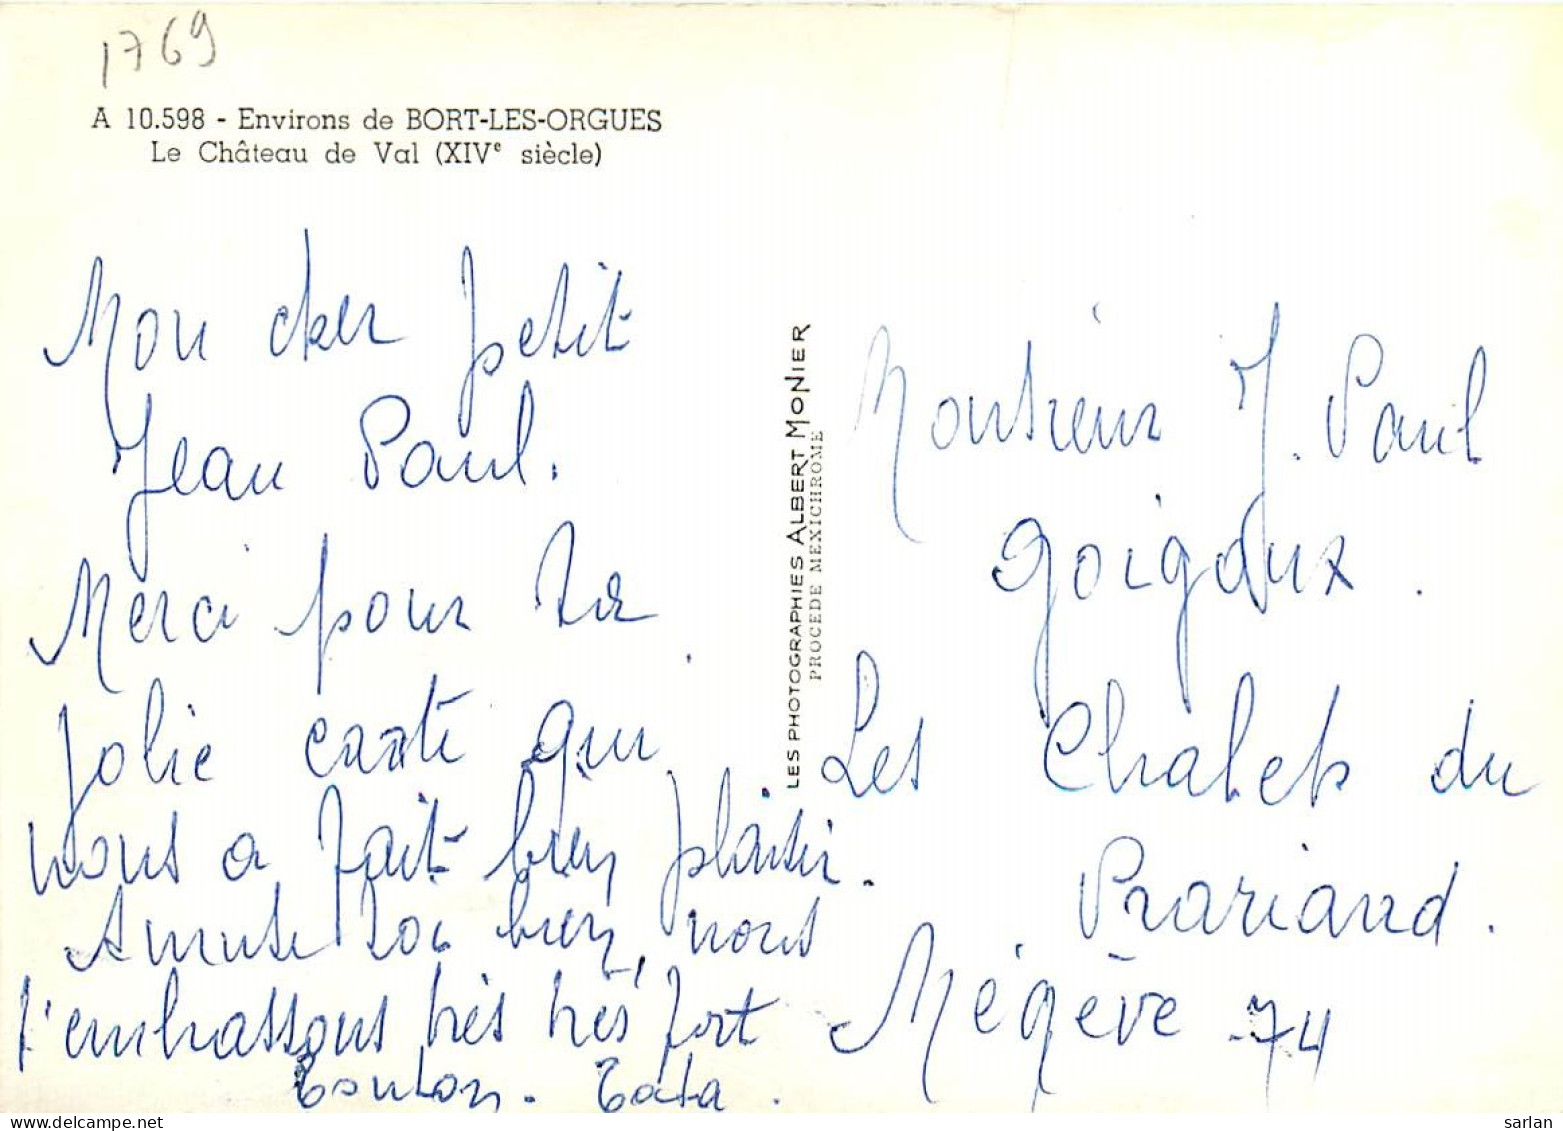 1769
A 10.598 - Environs de BORT-LES-ORGUES
Le Château de Val (XIVe siècle)
Mon cher petit
Jean Paul.
Merci pour ta
jolie carte qui
nous a fait bien plaisir.
Amuse toi bien, nous
t'embrassons très très fort
Tonton. Tata.
LES PHOTOGRAPHIES ALBERT MONIER
PROCEDE MEXICHROME
Monsieur J. Paul
Goigoux.
Les Chalets du
Prariand.
Megève 74
sarlan